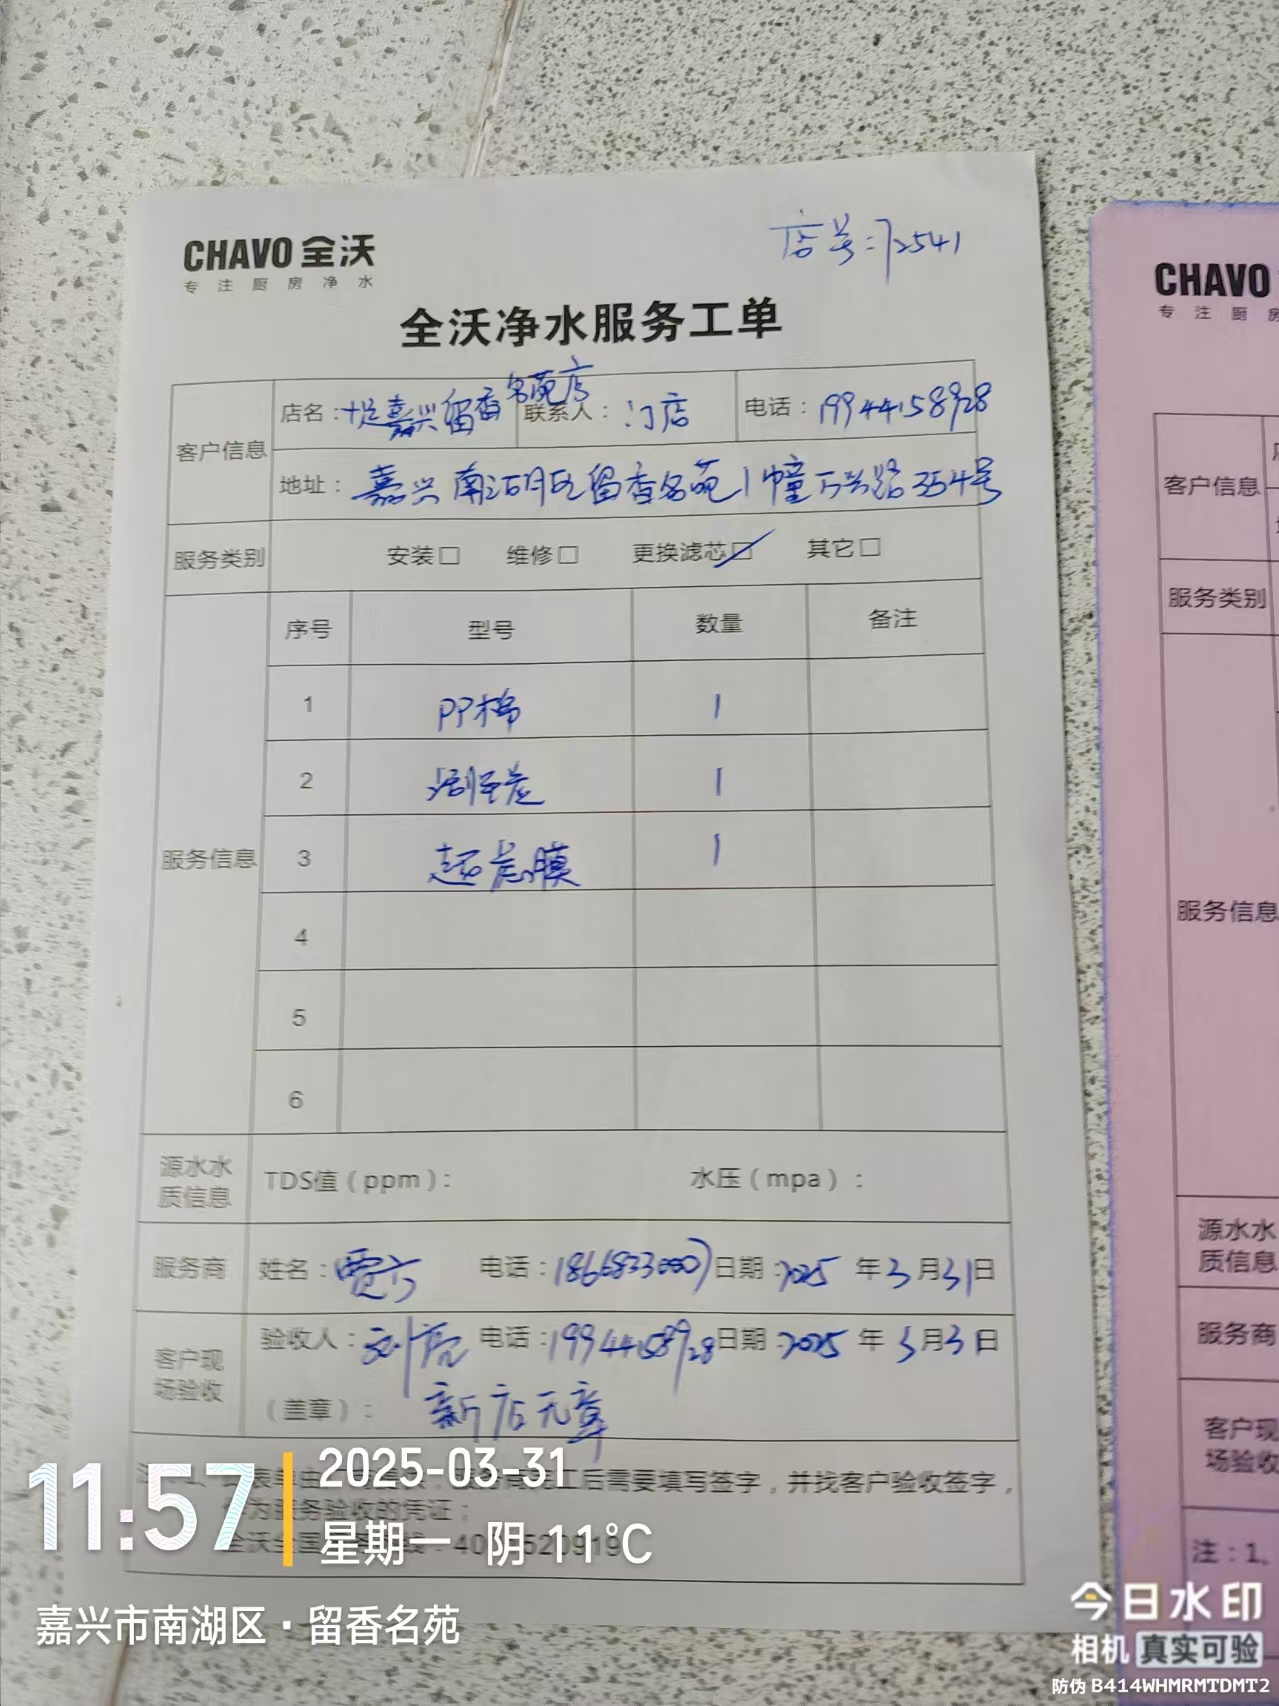 CHAVO 全沃
专注厨房净水
店号:72541
全沃净水服务工单
客户信息
店名:十足嘉兴留香名苑店 联系人:门店 电话:19944158928
地址:嘉兴南湖区留香名苑1幢万兴路354号
服务类别 安装□ 维修□ 更换滤芯☑ 其它□
服务信息
序号 型号 数量 备注
1 PP棉 1
2 1
3 超滤膜 1
4
5
6
源水水质信息 TDS值(ppm): 水压(mpa):
服务商 姓名:贾 电话: 日期:2025年3月31日
客户现场验收
验收人:刘亮 电话:19944158928 日期:2025年3月3日
(盖章): 新店无章
后需要填写签字,并找客户验收签字,
为服务验收的凭证;
全沃全国
11:57
2025-03-31
星期一 阴 11℃
嘉兴市南湖区·留香名苑
CHAVO
专注厨
客户信息
服务类别
服务信息
源水水
质信息
服务商
客户现
场验收
注:1、
今日水印
相机 真实可验
防伪 B414WHMRMTDMT2